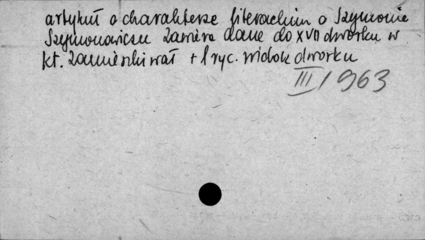 artykuł o charakterze literackim o Szymonie
Szymonowiczu zawiera dane do XVII dworku w
kt. zamieszkiwał + 1 ryc. widok dworku
III/1963